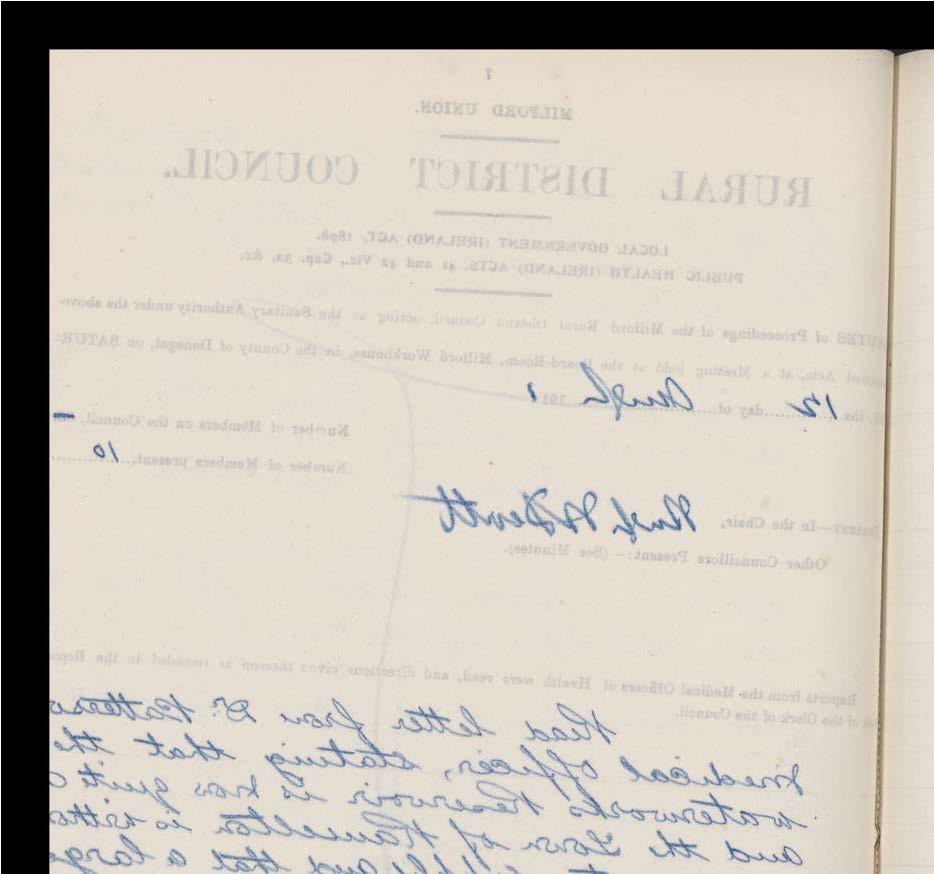 7
MILFORD UNION.
RURAL DISTRICT COUNCIL.
LOCAL GOVERNMENT (IRELAND) ACT, 1898.
PUBLIC HEALTH (IRELAND) ACTS, 41 and 42 Vic., Cap. 52, &c.
UTES of Proceedings of the Milford Rural District Council, acting as the Sanitary Authority under the above-
Acts, at a Meeting held at the Board-Room, Milford Workhouse, in the County of Donegal, on SATUR-
the 12 day of 191 1
Number of Members on the Council,
Number of Members present, 10
—In the Chair, Hugh
Other Councillors Present:—(See Minutes).
Reports from the Medical Officers of Health were read, and directions given thereon as recorded in the Repo
of the Clerk of the Council.
Read letter from Dr. Patterso
medical officer, stating that the
waterworks Reservoir is now quit
and the Town of Ramelton is witho
and that a large